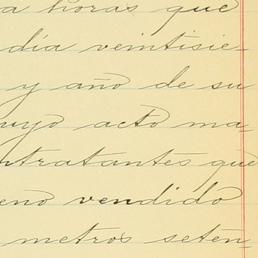 a horas que
día veintisie-
y año de su
cuyo acto ma-
ntratantes que
eno vendido
metros seten-